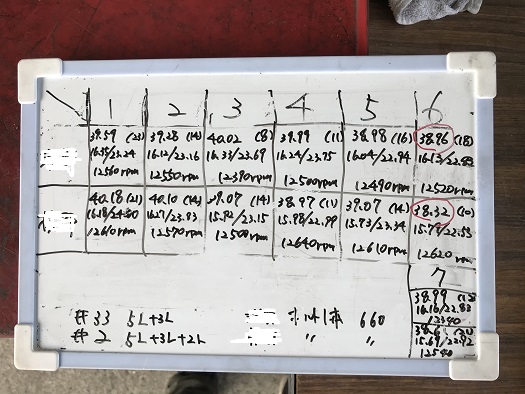 1 2 3 4 5 6
39.59 (23) 39.28 (14) 40.02 (8) 39.99 (11) 38.98 (16) 38.96 (18)
16.35/23.24 16.12/23.16 16.33/23.69 16.24/23.75 16.04/22.94 16.13/22.83
12560rpm 12550rpm 12390rpm 12500rpm 12490rpm 12520rpm
40.18 (21) 40.10 (14) 39.07 (14) 38.97 (11) 39.07 (14) 38.32 (20)
16.18/24.00 16.27/23.83 15.92/23.15 15.98/22.99 15.73/23.34 15.79/22.53
12610rpm 12570rpm 12500rpm 12640rpm 12610rpm 12620rpm
7
38.99
16.16/22.83
12540
15.69/22.92
12540
#33 5L+3L 660
#2 5L+3L+2L 〃 〃